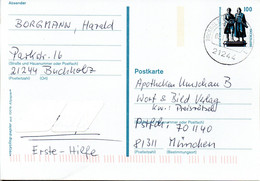 Absender
BORGMANN, Harald
Parkstr. 16
(Straße und Hausnummer oder Postfach)
21244 Buchholz
(Postleitzahl) (Ort)
Erste-Hilfe
100
21244
Postkarte
Apotheken Umschau B
Wort & Bild Verlag
Kw.: Preisrätsel
Postf. 70 11 40
(Straße und Hausnummer oder Postfach)
81311 München
(Postleitzahl) (Bestimmungsort)